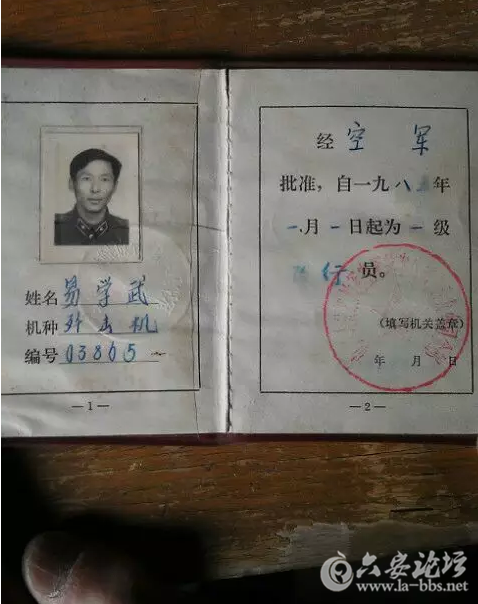 姓名 易学武
机种 歼击机
编号 03805
—1—
经 空军
批准，自一九八 年
一月一日起为一级
行员。
(填写机关盖章)
年 月 日
—2—
六安论坛
www.la-bbs.net